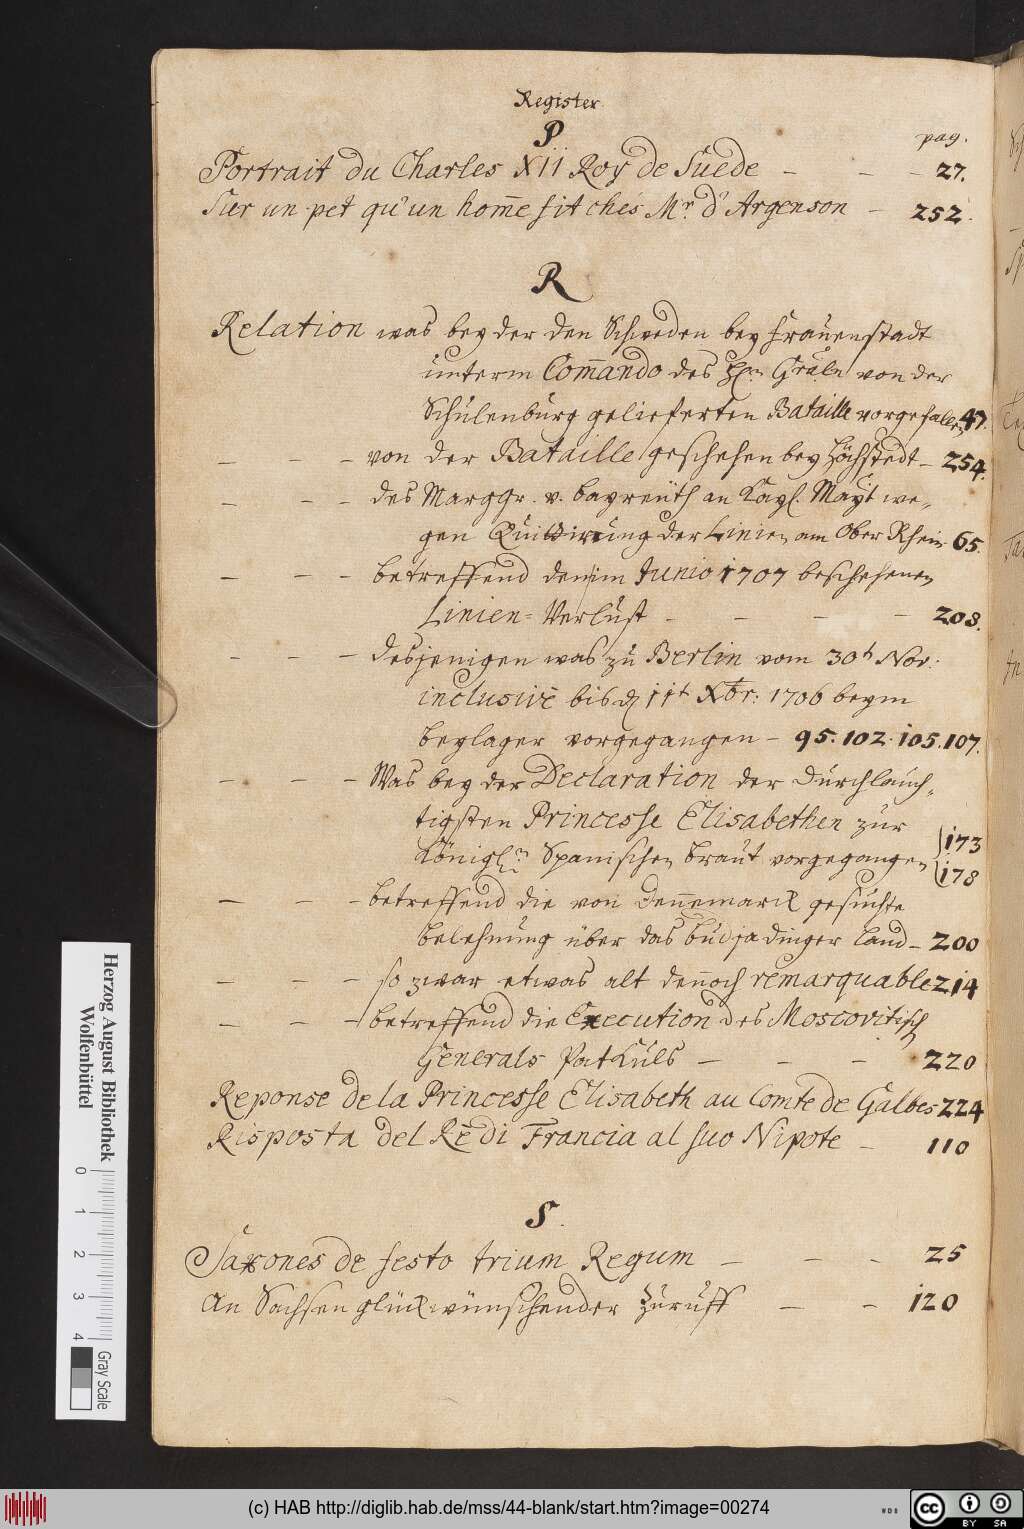 Register
P
pag.
Portrait du Charles XII Roy de Suede - - - 27.
Sur un pet qu'un hom̅e fit chés Mr. d'Argenson - 252.
R
Relation was bey der den Schweden bey Frauenstadt
unterm Com̅ando des Hn. Grafn von der
Schulenburg gelieferten Bataille vorgefallen 47.
- - - von der Bataille geschehen bey Höchstedt - 254.
- - - des MargGr. v. Bayreuth an Kayl. Mayt we-
gen Quittirung der Linien am Ober Rhein 65.
- - - betreffend den im Junio 1707 beschehenen
Linien-Verlust - - - - 208.
- - - desjenigen was zu Berlin vom 30t Nov.
inclusivè bis d 11t Xbr: 1706 beym
Beylager vorgegangen - 95. 102. 105. 107.
- - - Was bey der Declaration der Durchlauch-
tigsten Princesse Elisabethen zur
Königln Spanischen Braut vorgegangen {173 {178
- - - betreffend die von Den̅emarck gesuchte
Belehnung über das Budjadinger Land - 200
- - - so zwar etwas alt den̅och remarquable 214
- - - betreffend die Execution des Moscovitisch
Generals Patkuls - - - 220
Reponse de la Princesse Elisabeth au Comte de Galbes 224
Risposta del Rè di Francia al suo Nipote - 110
S.
Saxones de festo trium Regum - - - 25
An Sachsen glückwünschender Zuruff - - 120
Herzog August Bibliothek
Wolfenbüttel
0 1 2 3 4
Gray Scale
(c) HAB http://diglib.hab.de/mss/44-blank/start.htm?image=00274
WDB
cc BY SA